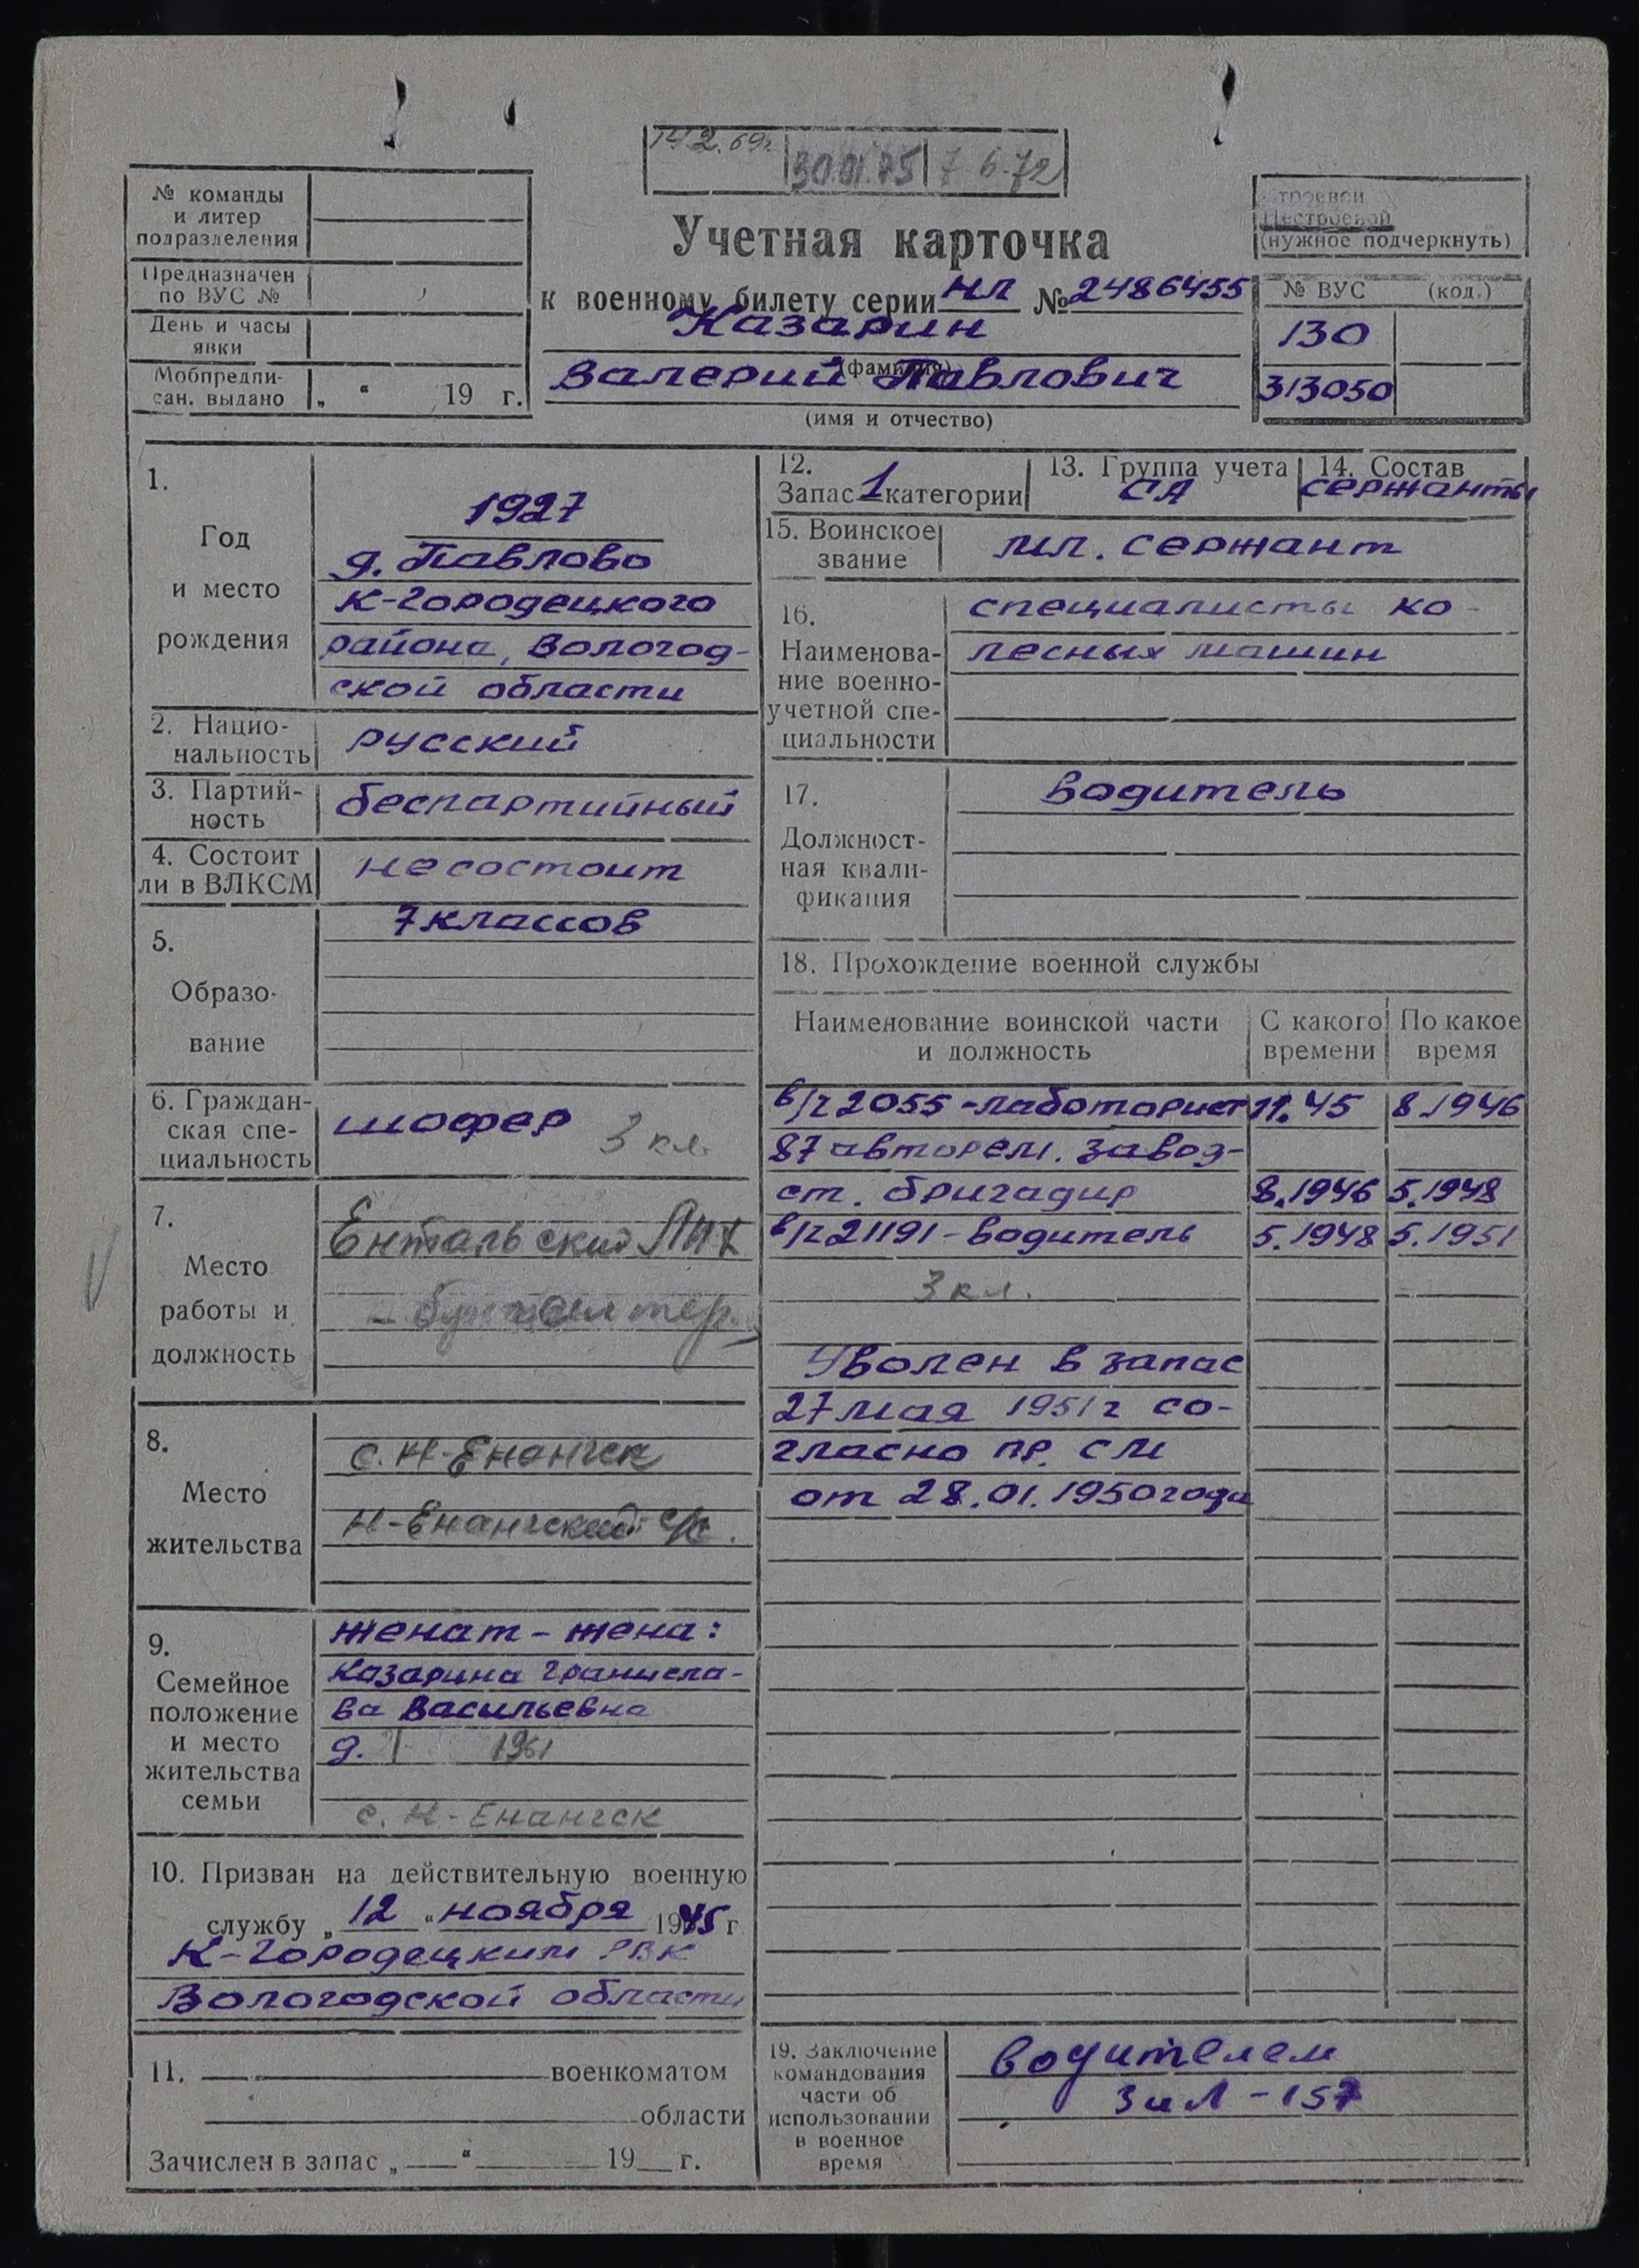 14.2.69г. 30.01.75 7.6.72
№ команды
и литер
подразделения
Предназначен
по ВУС №
День и часы
явки
Мобпредпи-
сан. выдано „ “ 19 г.
Учетная карточка
к военному билету серии НЛ № 2486455
Казарин
(фамилия)
Валерий Павлович
(имя и отчество)
строевой
Нестроевой
(нужное подчеркнуть)
№ ВУС (код.)
130
313050
1.
Год
и место
рождения
1927
д. Павлово
К-Городецкого
района, Вологод-
ской области
2. Нацио-
нальность
русский
3. Партий-
ность
беспартийный
4. Состоит
ли в ВЛКСМ
не состоит
5.
Образо-
вание
7 классов
6. Граждан-
ская спе-
циальность
шофер 3 кл.
7.
Место
работы и
должность
Ентальский ЛПХ
- бухгалтер.
8.
Место
жительства
с. Н-Енангск
Н-Енангский с/с.
9.
Семейное
положение
и место
жительства
семьи
женат - жена:
Казарина Гранисла-
ва Васильевна
д. 1951
с. Н-Енангск
10. Призван на действительную военную
службу „ 12 “ ноября 1945 г
К-Городецким РВК
Вологодской области
11. военкоматом
области
Зачислен в запас „ “ 19 г.
12.
Запас 1 категории
13. Группа учета
СА
14. Состав
сержанты
15. Воинское
звание
мл. сержант
16.
Наименова-
ние военно-
учетной спе-
циальности
специалисты ко-
лесных машин
17.
Должност-
ная квали-
фикация
водитель
18. Прохождение военной службы
Наименование воинской части
и должность
С какого
времени
По какое
время
в/ч 2055 - лаботорист 11.45 8.1946
87 авторем. завод-
ст. бригадир 8.1946 5.1948
в/ч 21191 - водитель 5.1948 5.1951
3 кл.
Уволен в запас
27 мая 1951 г со-
гласно пр. СМ
от 28.01.1950 года
19. Заключение
командования
части об
использовании
в военное
время
водителем
ЗиЛ - 157